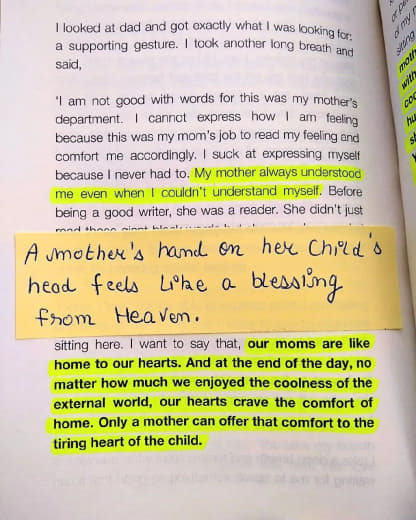 I looked at dad and got exactly what I was looking for;
a supporting gesture. I took another long breath and
said,
'I am not good with words for this was my mother's
department. I cannot express how I am feeling
because this was my mom's job to read my feeling and
comfort me accordingly. I suck at expressing myself
because I never had to. My mother always understood
me even when I couldn't understand myself. Before
being a good writer, she was a reader. She didn't just
A mother's hand on her child's
head feels like a blessing
from Heaven.
sitting here. I want to say that, our moms are like
home to our hearts. And at the end of the day, no
matter how much we enjoyed the coolness of the
external world, our hearts crave the comfort of
home. Only a mother can offer that comfort to the
tiring heart of the child.